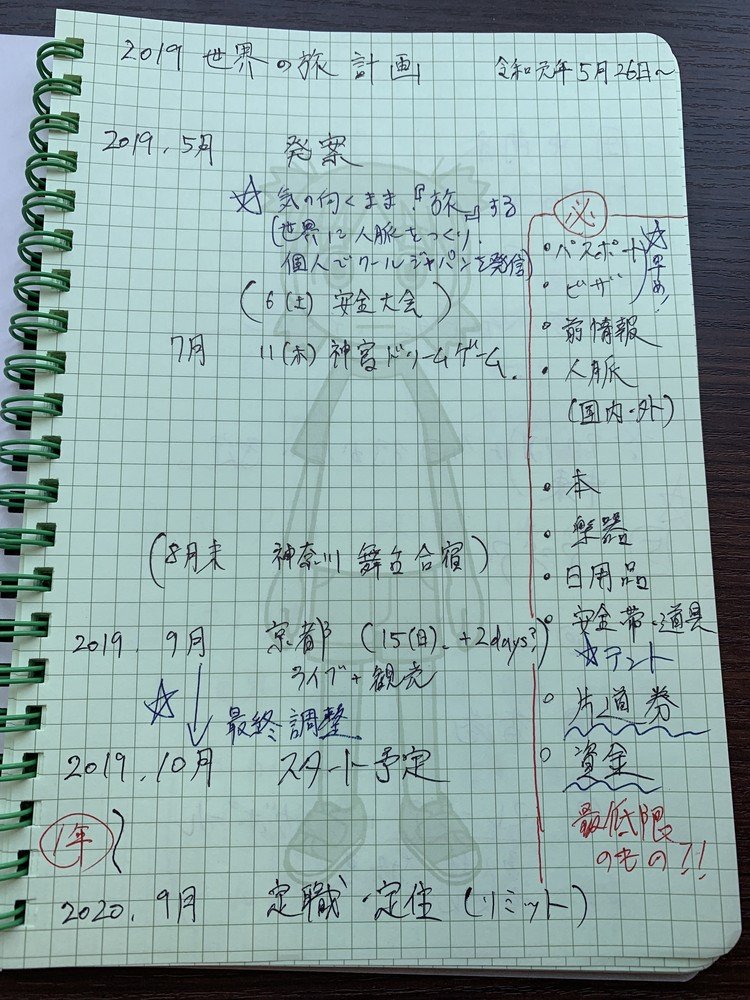 2019 世界の旅 計画
令和元年5月26日〜
2019.5月 発案
☆ 気の向くまま『旅』する
(世界に人脈をつくり、
個人でクールジャパンを発信)
(6(土) 安全大会)
7月 11(木) 神宮ドリームゲーム.
(8月末 神奈川 舞台合宿)
2019.9月 京都 (15(日)、+2days?)
ライブ+観光
☆ 最終調整
2019.10月 スタート予定
1年
2020.9月 定職・定住 (リミット)
必
・パスポート
・ビザ
☆早め!
・前情報
・人脈
(国内・外)
・本
・楽器
・日用品
・安全帯・道具
☆テント
○ 片道券
○ 資金
最低限
のもの!!